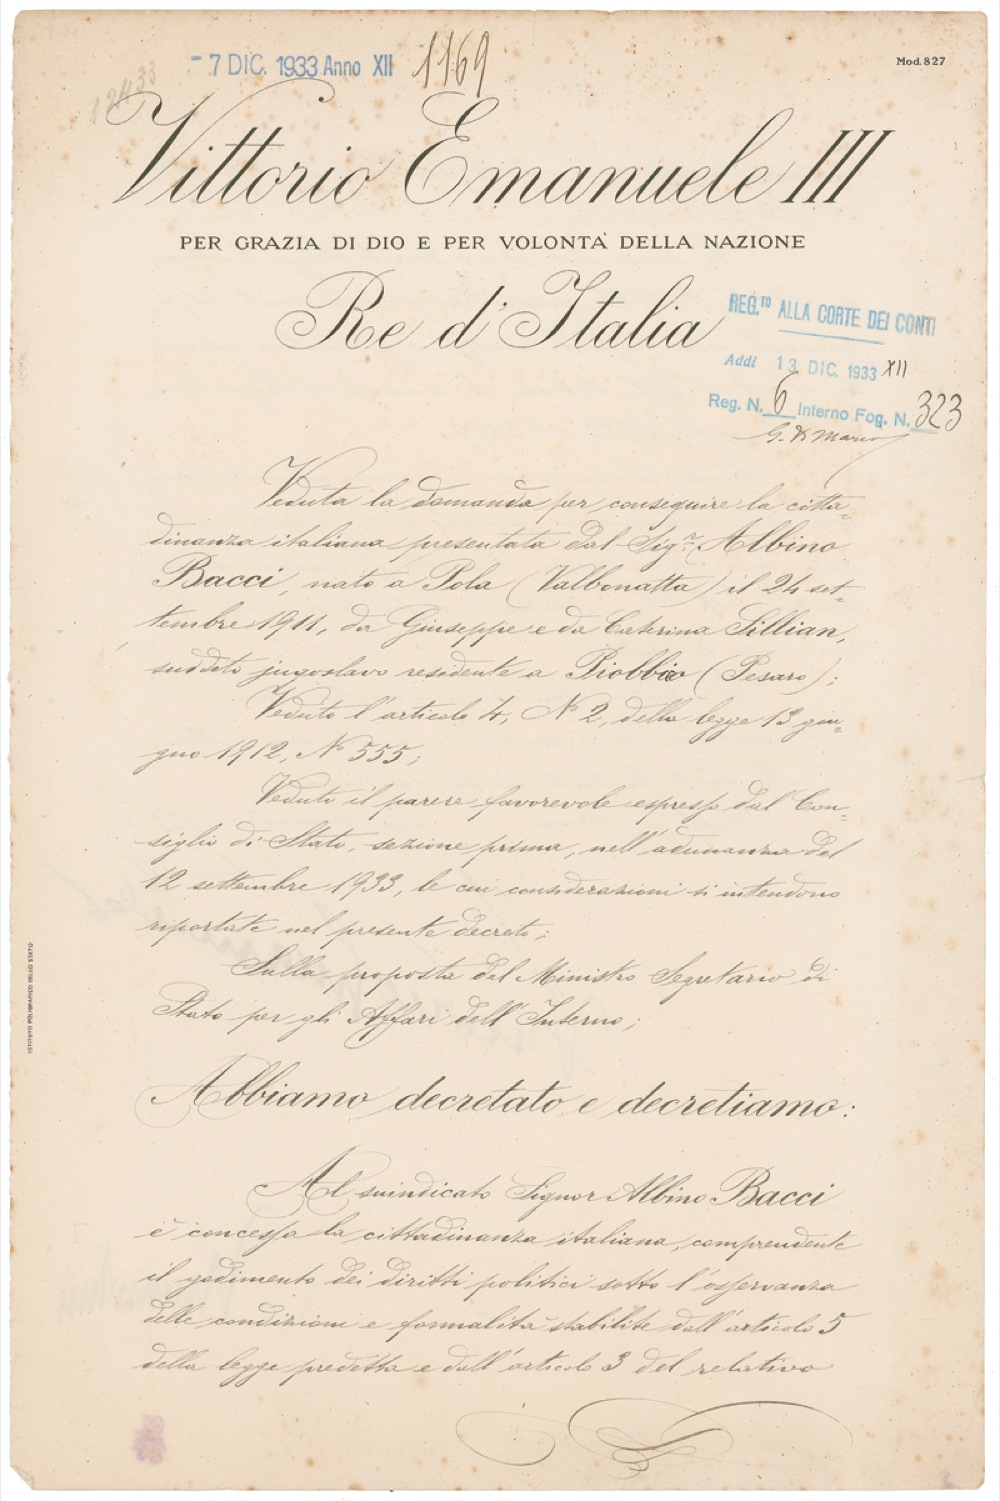 - 7 DIC. 1933 Anno XII 1169
Mod. 827
Vittorio Emanuele III
PER GRAZIA DI DIO E PER VOLONTÀ DELLA NAZIONE
Re d'Italia
REG.TO ALLA CORTE DEI CONTI
Addì 13. DIC. 1933 XII
Reg. N. 6 Interno Fog. N. 323
Veduta la domanda per conseguire la citta-
dinanza italiana presentata dal Sig.r Albino
Bacci, nato a Pola (Valbonatta) il 24 set-
tembre 1911, da Giuseppe e da Caterina Sillian,
suddito jugoslavo residente a Piobbico (Pesaro);
Veduto l'articolo 4, N° 2, della legge 13 giu-
gno 1912, N° 555;
Veduto il parere favorevole espresso dal Con-
siglio di Stato, sezione prima, nell'adunanza del
12 settembre 1933, le cui considerazioni si intendono
riportate nel presente decreto;
Sulla proposta del Ministro Segretario di
Stato per gli Affari dell'Interno;
Abbiamo decretato e decretiamo:
Al suindicato Signor Albino Bacci
è concessa la cittadinanza italiana, comprendente
il godimento dei diritti politici sotto l'osservanza
delle condizioni e formalità stabilite dall'articolo 5
della legge predetta e dall'articolo 3 del relativo
ISTITUTO POLIGRAFICO DELLO STATO